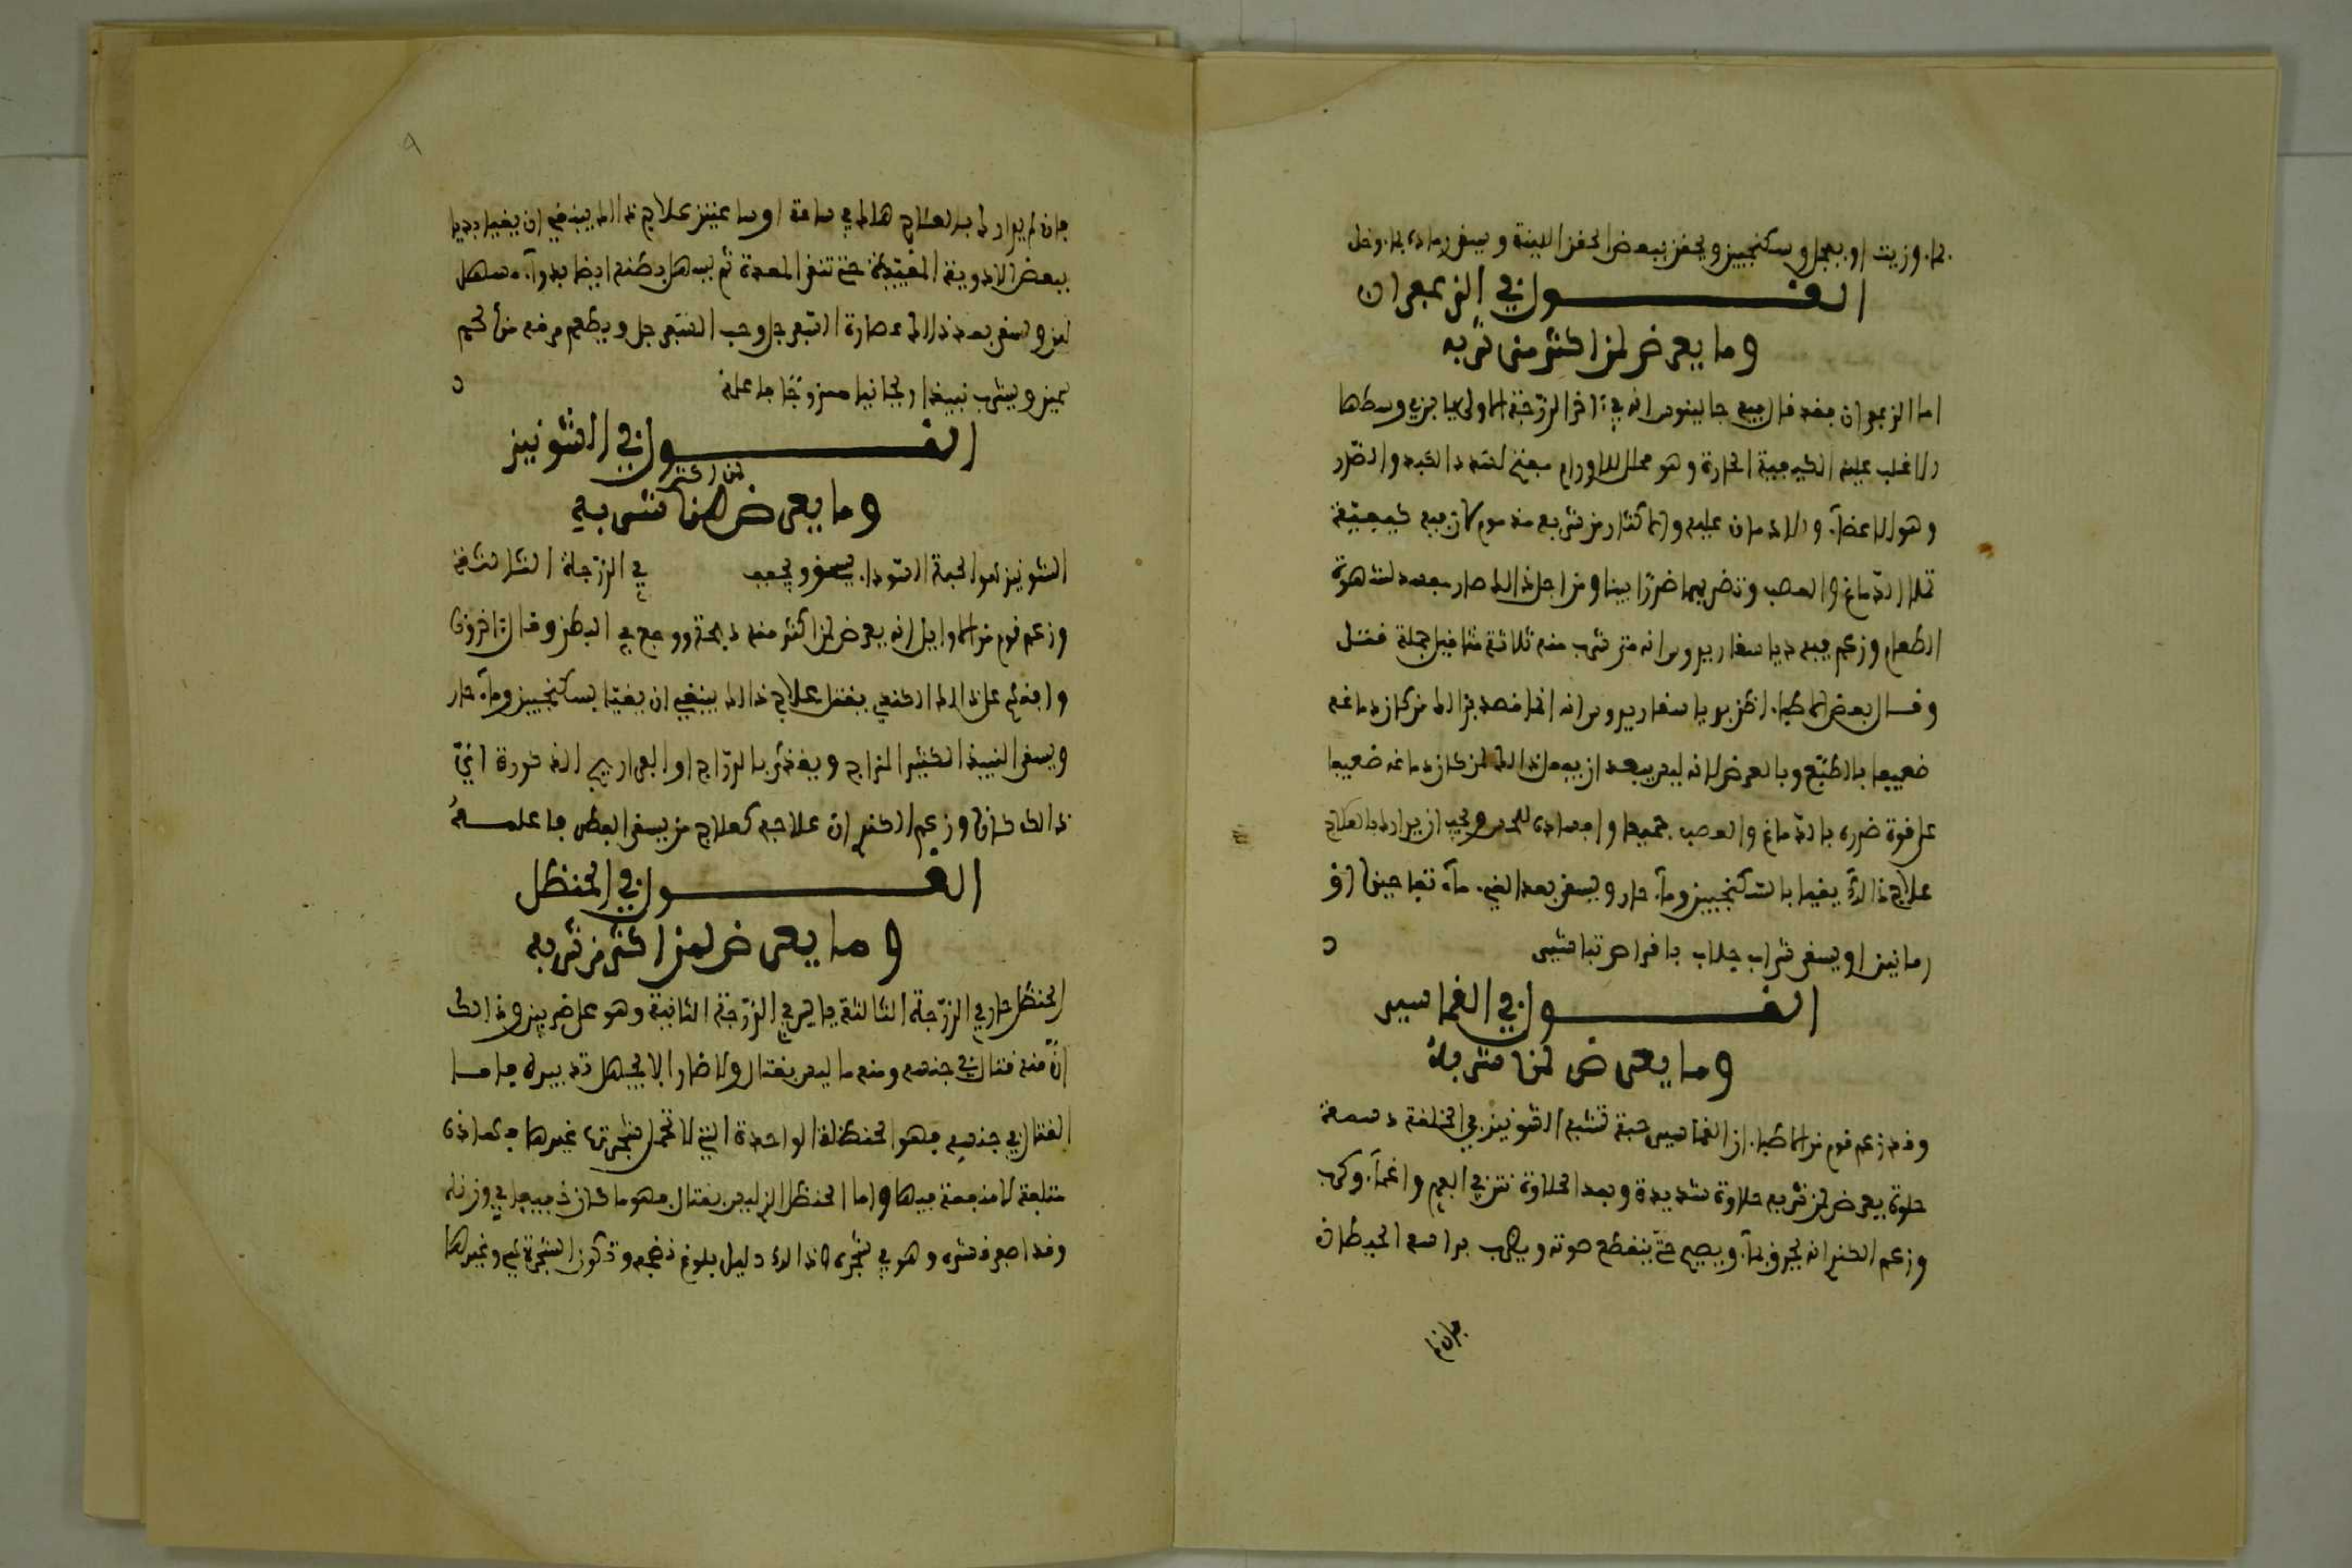 بماء وزيت او بعجل وسكنجبين ويحقن ببعض الحقن اللينة ويسقى رماد بماء وخل
القول في الزعفران
وما يعرض لمن اكثر من شربه
اما الزعفران فقد قال فيه جالينوس انه في آخر الدرجة الاولى يابس في وسطها
والاغلب عليه الكيفية الحارة وهو محلل للاورام مفتح لسدد الكبد والصدر
وهو الاعضآء والادمان عليه والاكثار من شربه مذموم لان فيه كيفية
تملا الدماغ والعصب وتضر بهما ضررا بينا ومن اجل ذالك صار يفسد لشهوة
الطعام وزعم فيه دياسقاريدوس انه متى شرب منه ثلاثة مثاقيل جملة قتل
وقال بعض الاطباء اظن بدياسقاريدوس انه انما قصد بذالك من كان دماغه
ضعيفا بالطبع وبالعرض لانه ليس يبعد ان يفعل ذالك لمن كان دماغه ضعيفا
على قوة ضرره بالدماغ والعصب جميعا وافساده للحس ويجب ان يدارك بالعلاج
علاج ذالك يقيا بالسكنجبين ومآء حار ويسقى بعد القيء مآء تفاحين او
رمانين او يسقى شراب جلاب باقراص تباشير
القول في الغماسير
وما يعرض لمن شربه
وقد زعم قوم من الاطباء ان الغماسير حبة تشبه الشونيز في الخلقة دسمة
حلوة يعرض لمن شربه حلاوة شديدة وبعد الحلاوة نتن في الفم واغمآء وكرب
وزعم الكندي انه يحرق بمآء ويصيح حتى ينقطع صوته ويضرب براسه الحيطان
فان لم
فان لم يدارك بالعلاج هلك في ساعة او ساعتين علاج ذالك ينبغي ان يقيا بديا
ببعض الادوية المقيئة حتى تنقى المعدة ثم يسهل بطنه ايضا بدوآء مسهل
لين ويسقى بعد ذالك عصارة السفرجل وحب السفرجل ويطعم مرقه من لحم
سمين ويشرب نبيذا ريحانيا ممزوجا فاعلمه
القول في الشونيز
وما يعرض لمن اكثر شربه
الشونيز هو الحبة السوداء يسخن ويجفف في الدرجة الثالثة
وزعم قوم من الاوايل انه يعرض لمن اكثر منه ذبحة ووجع في البطن وقال اخرون
وافقهم على ذالك الكندي يقتل علاج ذالك ينبغي ان يقيا بسكنجبين ومآء حار
ويسقى النبيذ الكثير المزاج ويغذى بالدراج او الفراريج المذكورة اي
ذالك كان وزعم الكندي ان علاجه كعلاج من يسقى الفطر فاعلمه
القول في الحنظل
وما يعرض لمن اكثر من شربه
الحنظل حار في الدرجة الثالثة يابس في الدرجة الثانية وهو على ضربين وذالك
ان منه قتال في جنسه ومنه ما ليس بقتال ولا ضار الا لجهل تدبيره فاما
القتال في جنسه فهو الحنظلة الواحدة التي لا تحمل شجرتها غيرها فهاذه
متلفة لا منفعة فيها واما الحنظل الذي ليس بقتال فهو ما كان خفيفا في وزنه
وقد اصفر قشره وهو في شجره لان ذالك دليل بلوغ نضجه وتكون الشجرة فيه وغيرها